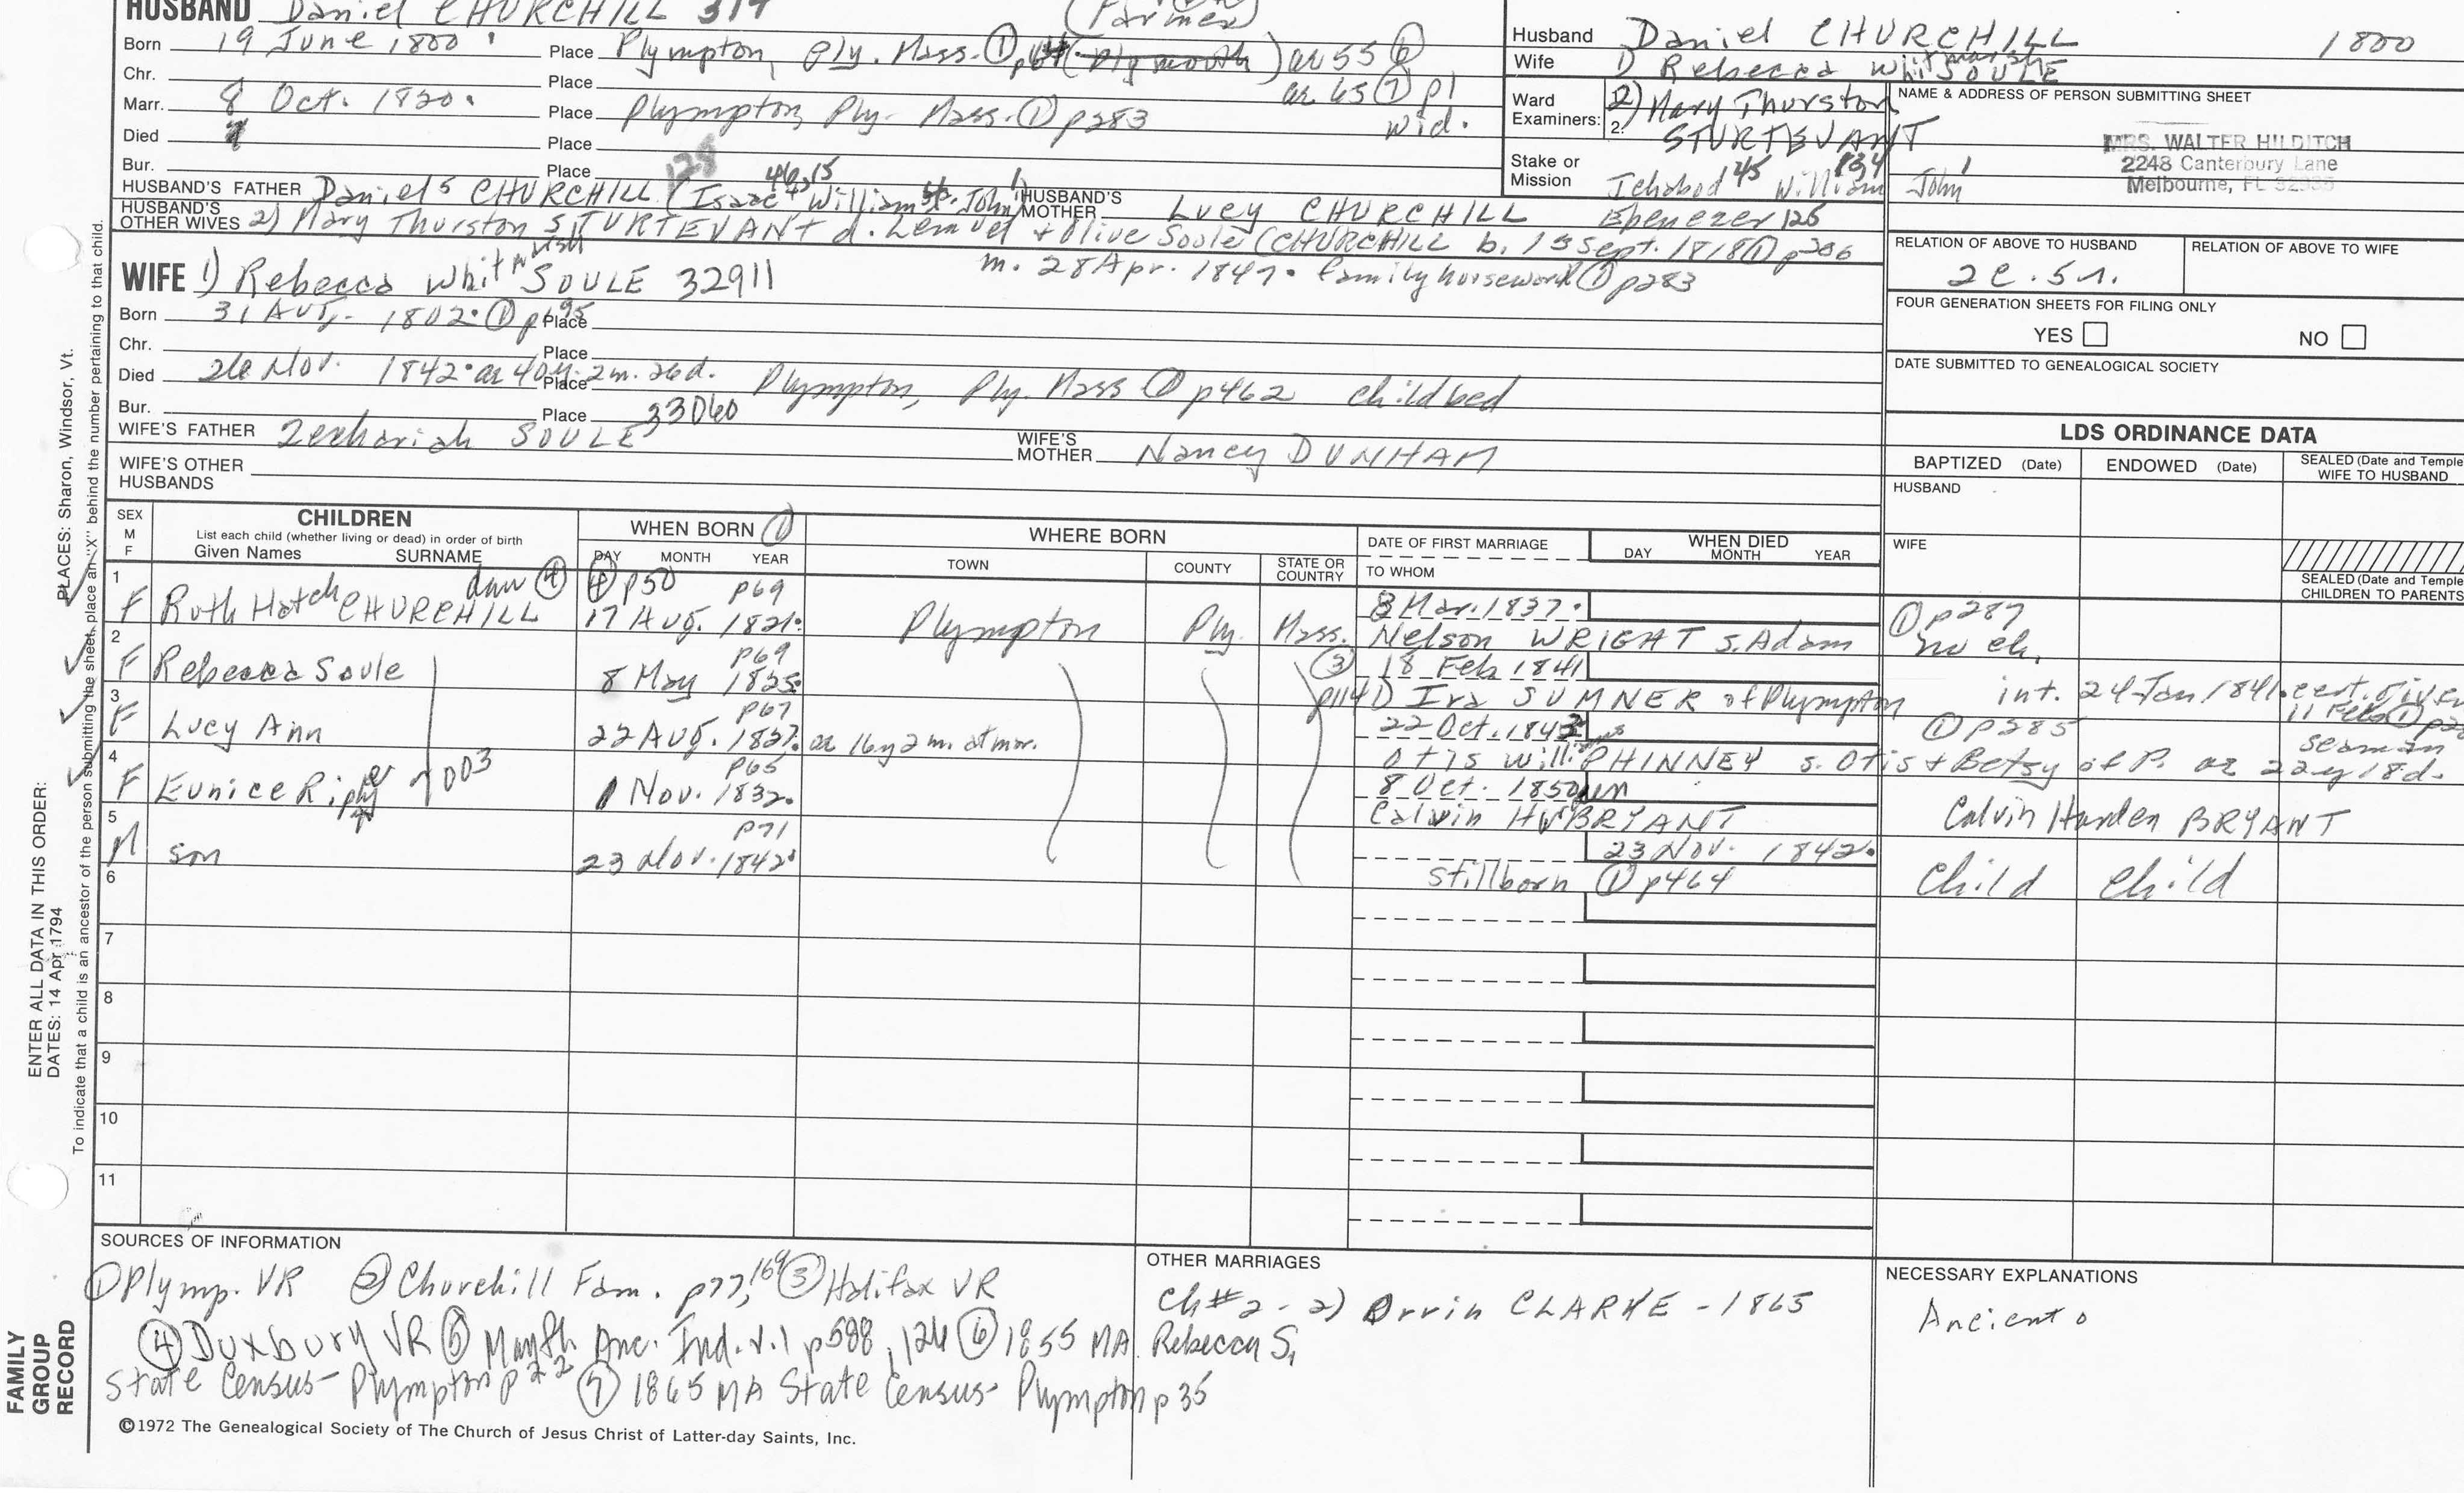 HUSBAND Daniel CHURCHILL 314 (Farmer)
Born 19 June 1800. Place Plympton, Ply. Mass. ① (Plymouth) ae 55 ⑥
Chr. Place ae 65 ⑦ p1
Marr. 8 Oct. 1820. Place Plympton, Ply. Mass. ① p283 wid.
Died Place
Bur. Place 128
HUSBAND'S FATHER Daniel 5 CHURCHILL (Isaac 4 William John 1) HUSBAND'S MOTHER Lucy CHURCHILL Ebenezer 126
HUSBAND'S OTHER WIVES 2) Mary Thurston STURTEVANT d. Lemuel + Olive Soule (CHURCHILL b. 13 Sept. 1818 ① p206
m. 28 Apr. 1847. family housework ① p283
WIFE 1) Rebecca Whitmarsh SOULE 32911
Born 31 Aug. 1802. ① p195 Place
Chr. Place
Died 26 Nov. 1842. ae 40y. 2m. 26d. Place Plympton, Ply. Mass ① p462 childbed
Bur. Place 33060
WIFE'S FATHER Zechariah SOULE WIFE'S MOTHER Nancy DUNHAM
WIFE'S OTHER HUSBANDS
Husband Daniel CHURCHILL 1800
Wife 1) Rebecca Whitmarsh SOULE
Ward Examiners: 2) Mary Thurston
2. STURTEVANT
Stake or Mission Ichabod 45 William 834 John 1
NAME & ADDRESS OF PERSON SUBMITTING SHEET
MRS. WALTER HILDITCH
2248 Canterbury Lane
Melbourne, FL 32935
RELATION OF ABOVE TO HUSBAND RELATION OF ABOVE TO WIFE
2c. 5r.
FOUR GENERATION SHEETS FOR FILING ONLY
YES NO
DATE SUBMITTED TO GENEALOGICAL SOCIETY
LDS ORDINANCE DATA
BAPTIZED (Date) ENDOWED (Date) SEALED (Date and Temple WIFE TO HUSBAND
HUSBAND
WIFE
SEALED (Date and Temple CHILDREN TO PARENTS
SEX M F CHILDREN WHEN BORN ① WHERE BORN DATE OF FIRST MARRIAGE WHEN DIED
List each child (whether living or dead) in order of birth
Given Names SURNAME DAY MONTH YEAR TOWN COUNTY STATE OR COUNTRY TO WHOM DAY MONTH YEAR
1 F Ruth Hatch CHURCHILL dau ④ ④ p50 p69 17 Aug. 1821. Plympton Ply. Mass. 8 Mar. 1837. Nelson WRIGHT s. Adam ① p287 no ch.
2 F Rebecca Soule p69 8 May 1825. ③ p114 18 Feb 1841 1) Ira SUMNER of Plympton int. 24 Jan 1841. cert. given 11 Feb ①
3 F Lucy Ann p67 22 Aug. 1827. ae 16y 2m. at mar. 22 Oct. 1843 Otis Will. PHINNEY s. Otis + Betsy of P. ae 22y 18d. ① p285 seaman
4 F Eunice Ripley 7003 p65 1 Nov. 1832. 8 Oct. 1850 Calvin H. BRYANT Calvin Harden BRYANT
5 M son p71 23 Nov. 1842. 23 Nov. 1842. stillborn ① p464 Child Child
6
7
8
9
10
11
SOURCES OF INFORMATION
① Plymp. VR ② Churchill Fam. p77, 169 ③ Halifax VR
④ Duxbury VR ⑤ Anc. Ind. v. 1 p588, 126 ⑥ 1855 MA
State Census - Plympton p22 ⑦ 1865 MA State Census - Plympton p35
OTHER MARRIAGES
Ch #2 - 2) Orrin CLARKE - 1865
Rebecca S.
NECESSARY EXPLANATIONS
Ancient
©1972 The Genealogical Society of The Church of Jesus Christ of Latter-day Saints, Inc.
FAMILY GROUP RECORD
ENTER ALL DATA IN THIS ORDER:
DATES: 14 Apr 1794
PLACES: Sharon, Windsor, Vt.
To indicate that a child is an ancestor of the person submitting the sheet, place an "X" behind the number pertaining to that child.